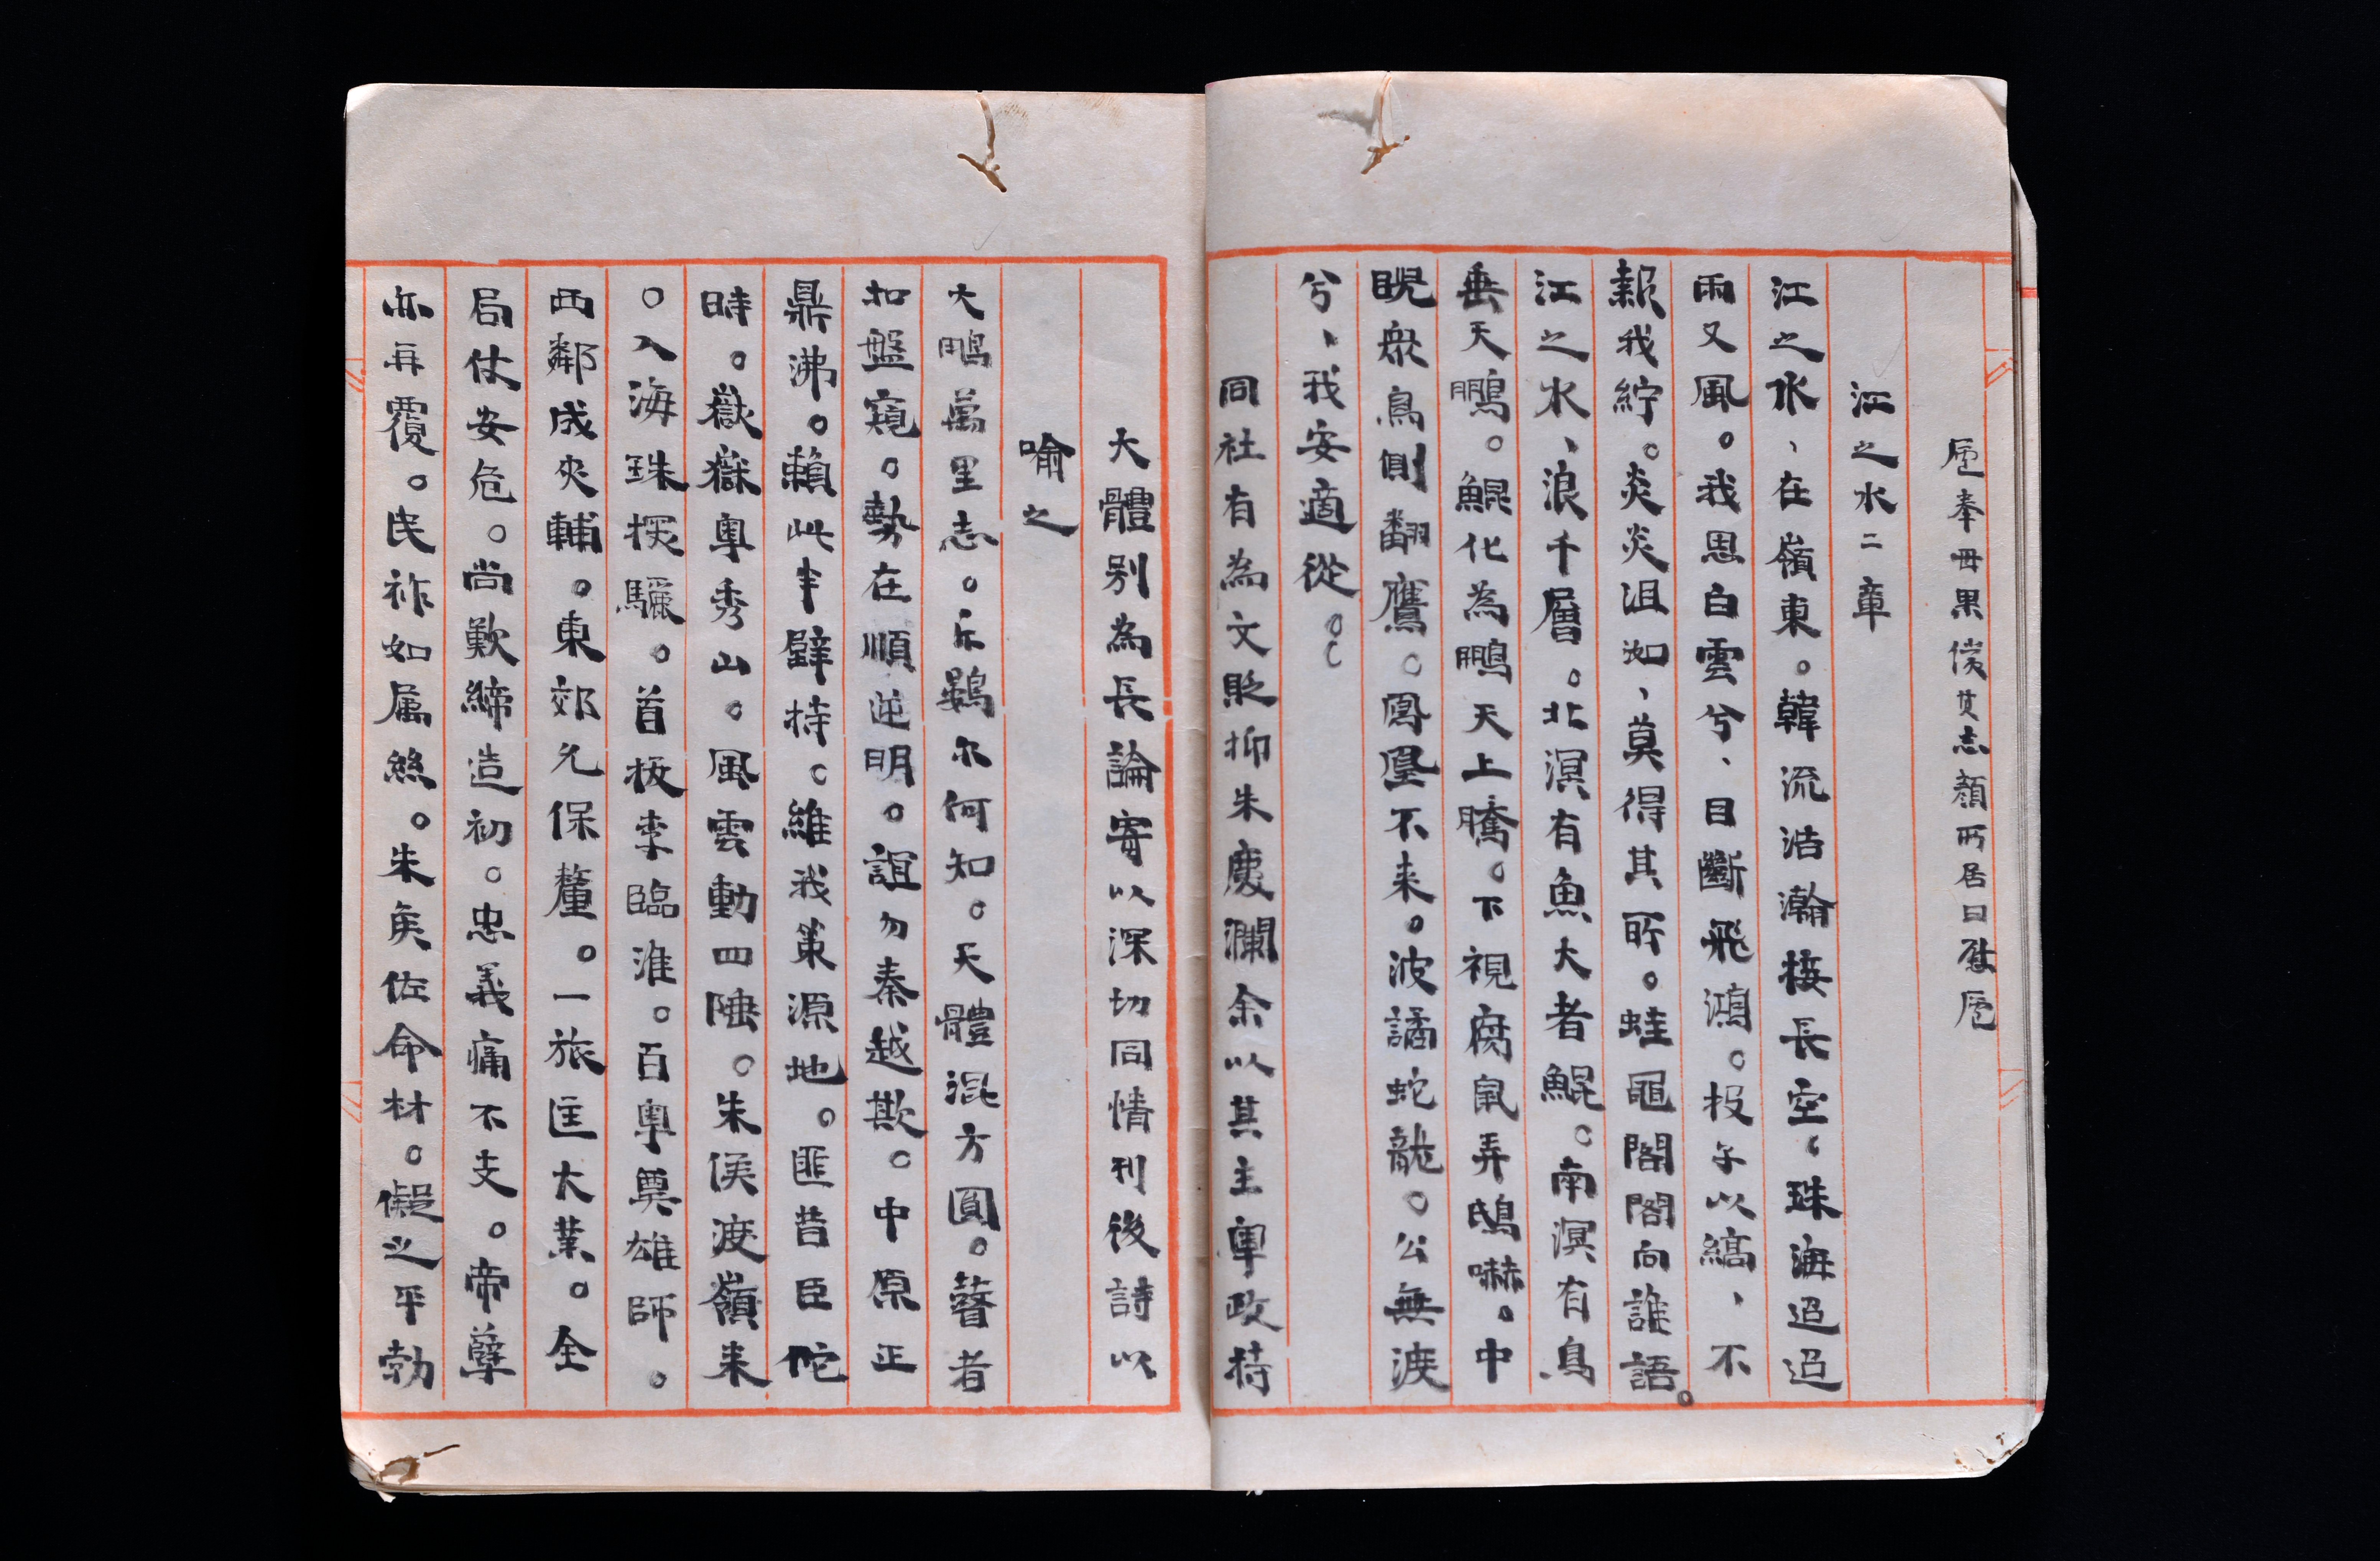 卮奉毋果償其志顏所居曰慰卮
江之水二章
江之水、在嶺東。韓流浩瀚接長空。珠海迢迢
雨又風。我思白雲兮、目斷飛鴻。投子以縞、不
報我紵。炎炎沮洳、莫得其所。蛙黽閣閣向誰語。
江之水、浪千層。北溟有魚大者鯤。南溟有鳥
垂天鵬。鯤化為鵬天上騰。下視腐鼠弄鴟嚇。中
睨眾鳥側翻鷹。鳳凰不来。波譎蛇龍。公無渡
兮、我安適從。。
同社有為文貶抑朱慶瀾余以其主軍政持
大體別為長論寄以深切同情刊後詩以
喻之
大鵬萬里志。斥鷃尔何知。天體混方圓。瞽者
扣盤窺。勢在順逆明。誼勿秦越欺。中原正
鼎沸。賴此半壁持。維我策源地。匪昔臣佗
時。嶽嶽粤秀山。風雲動四陲。朱侯渡嶺来
。入海珠探驪。首扳李臨淮。百粤奠雄師。
西鄰成夾輔。東郊允保釐。一旅匡大業。全
局仗安危。尚歎締造初。忠義痛不支。帝孽
亦再覆。民祚如属絲。朱矦佐命材。儗之平勃